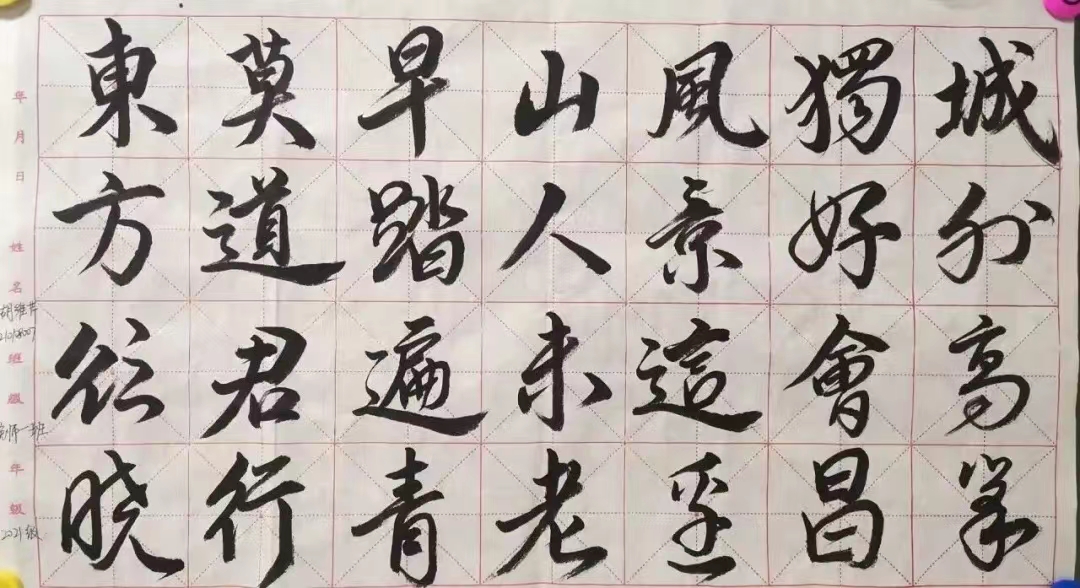 東方欲晓
莫道君行
早踏遍青
山人未老
風景這邊
獨好會昌
城外高峯
年月日
姓名
胡维
班级
一班
年级
2021级